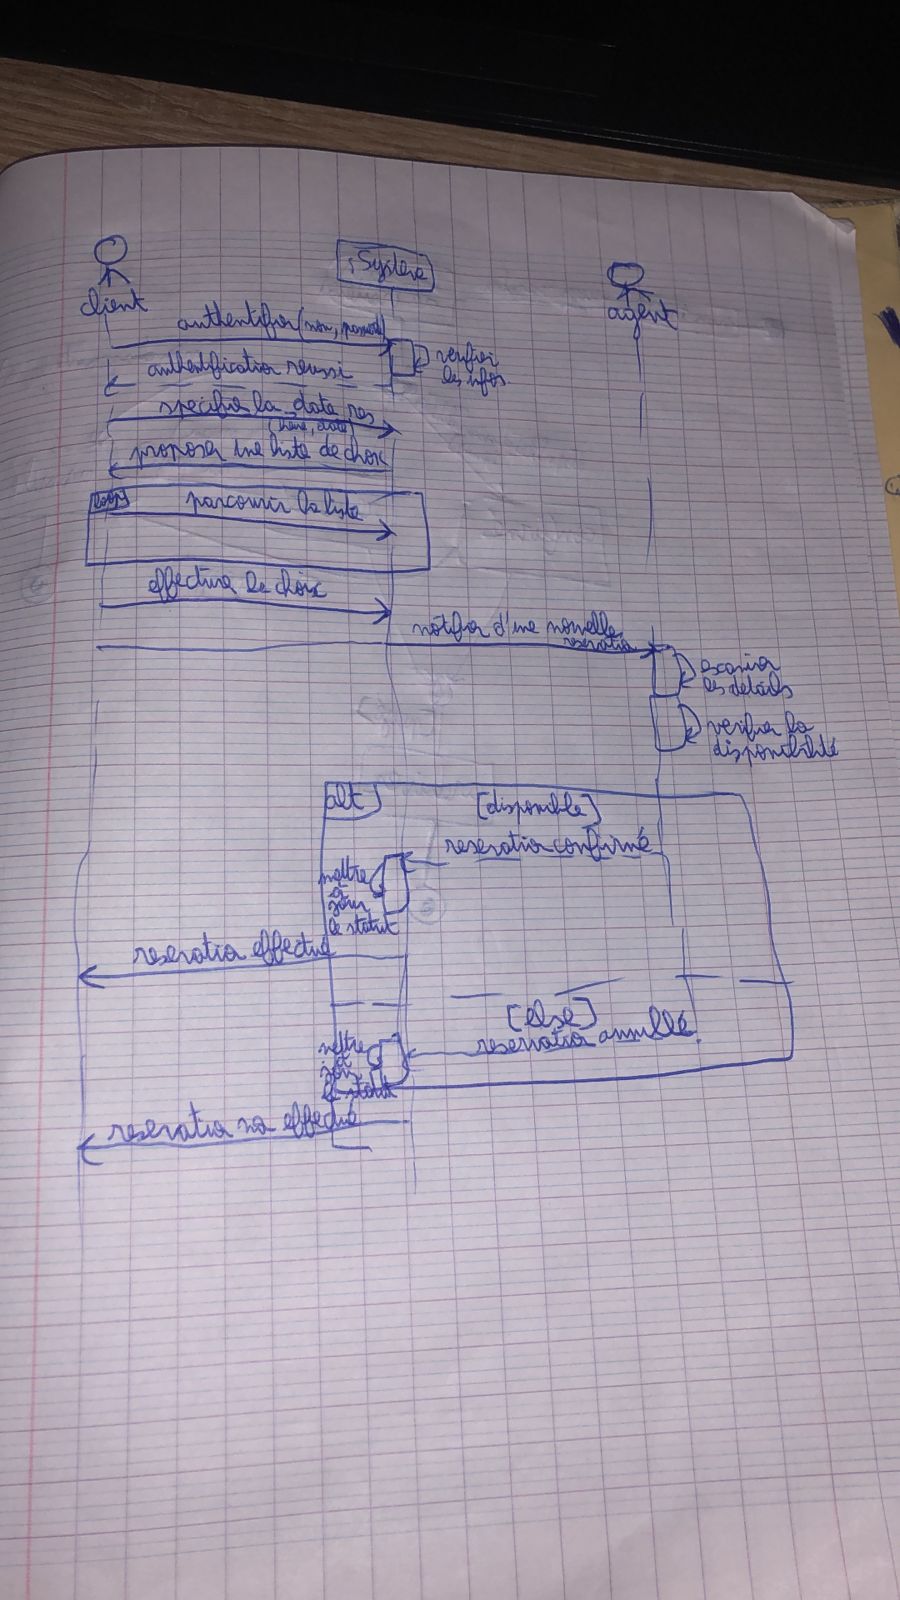 :Système
client
agent
authentifier(nom, passwd)
verifier
les infos
authentification réussi
specifier la date res
(heure, date)
proposer une liste de choix
loop
parcourir la liste
effectuer le choix
notifier d'une nouvelle
reservation
les details
verifier la
disponibilité
alt
[disponible]
reservation confirmé
mettre
à
jour
le statut
reservation effectué
[else]
reservation annullé
mettre
à
jour
le statut
reservation no effectué